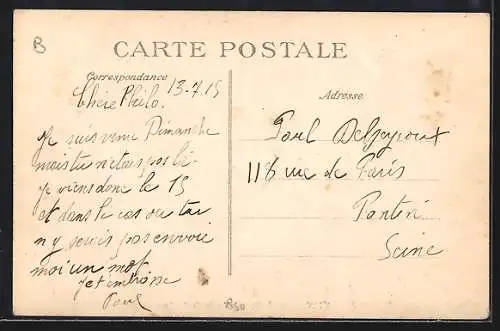 B
CARTE POSTALE
Correspondance
Adresse
13-7.15
Chère Philo.
Je suis venu Dimanche
mais tu n'étais pas là-
Je viens donc le 15
et dans le cas ou tu
n y serais pas envoie
moi un mot
Je t'embrasse
Paul
Paul Delpeyroux
118 rue de Paris
Pantin
Seine